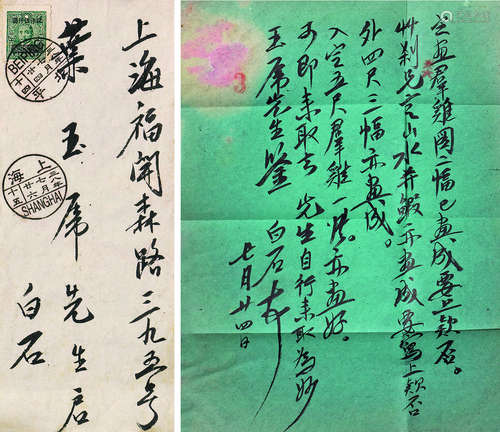 上海福開森路三九五号
葉玉虎先生启
白石
上海
SHANGHAI
畫羣雞圖二幅已畫成要上款否。
兄言山水并蝦亦畫成要寫上款否
外四尺三幅亦畫成。
入定五尺羣雞一張亦畫好。
可即来取去 先生自行来取為妙
玉虎先生鑒 白石
七月廿四日